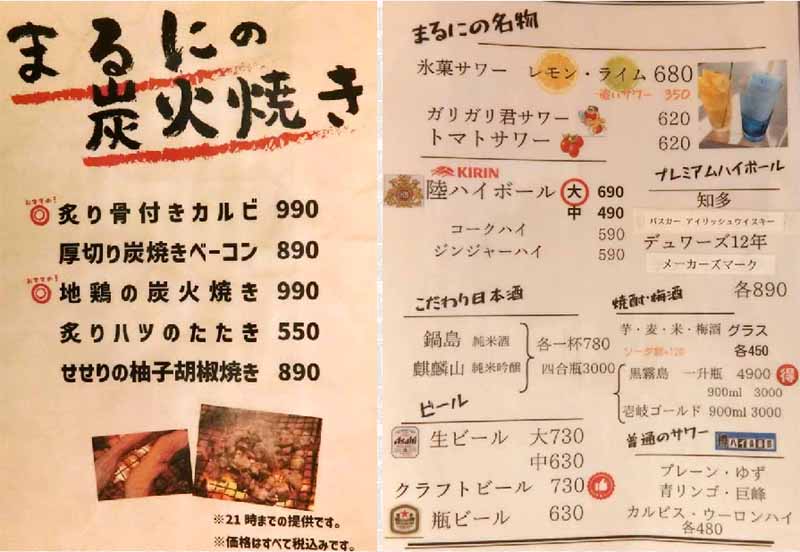 まるにの
炭火焼き
おすすめ!
炙り骨付きカルビ 990
厚切り炭焼きベーコン 890
おすすめ!
地鶏の炭火焼き 990
炙りハツのたたき 550
せせりの柚子胡椒焼き 890
※21時までの提供です。
※価格はすべて税込みです。
まるにの名物
氷菓サワー レモン・ライム 680
追いサワー 350
ガリガリ君サワー 620
トマトサワー 620
KIRIN
陸ハイボール 大 690
中 490
コークハイ 590
ジンジャーハイ 590
プレミアムハイボール
知多
バスカー アイリッシュウイスキー
デュワーズ12年
メーカーズマーク
各890
こだわり日本酒
鍋島 純米酒 各一杯780
麒麟山 純米吟醸 四合瓶3000
焼酎・梅酒
芋・麦・米・梅酒 グラス
ソーダ割+120 各450
黒霧島 一升瓶 4900 得
900ml 3000
壱岐ゴールド 900ml 3000
ビール
Asahi
生ビール 大730
中630
クラフトビール 730
瓶ビール 630
普通のサワー
プレーン・ゆず
青リンゴ・巨峰
カルピス・ウーロンハイ
各480